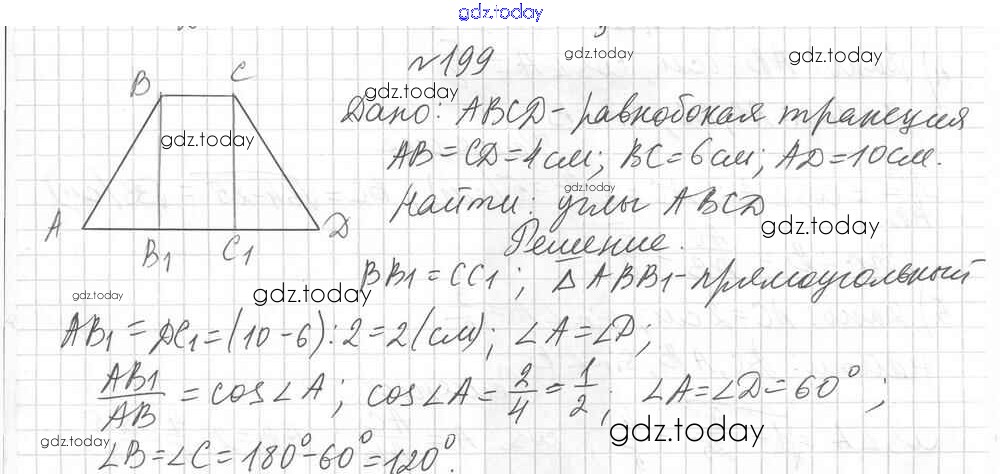 gdz.today
№199
gdz.today
gdz.today
B C
gdz.today
Дано: ABCD - равнобокая трапеция
gdz.today
AB = CD = 4 см; BC = 6 см; AD = 10 см.
gdz.today
Найти: углы ABCD
gdz.today
A B1 C1 D
Решение.
BB1 = CC1; △ABB1 - прямоугольный
gdz.today
gdz.today
AB1 = DC1 = (10 - 6) : 2 = 2 (см); ∠A = ∠D;
AB1/AB = cos∠A; cos∠A = 2/4 = 1/2; ∠A = ∠D = 60°;
gdz.today
gdz.today
∠B = ∠C = 180° - 60° = 120°.